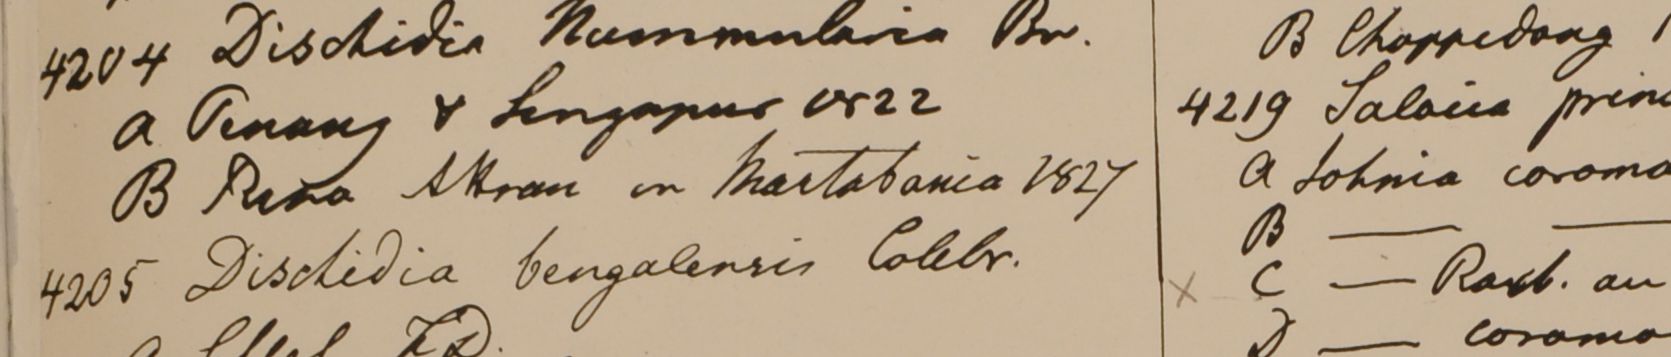 4204 Dischidia Nummularia Br.
a Penang & Singapur 1822
B Ripa Attran in Martabania 1827
4205 Dischidia bengalensis Colebr.
B Choppedong
4219 Salacia prin
a Johnia coroma
B — —
C — Roxb. an
D — coroma